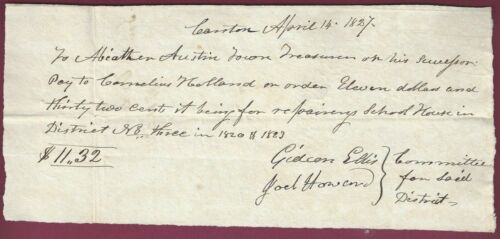 Canton April 14. 1827.
To Abiather Austin Town Treasurer or his sucessor.
Pay to Cornelius Holland or order Eleven dollars and
thirty two cent it being for repairing School House in
District No. three in 1820 & 1823
$11,32
Gideon Ellis
Joel Howard
Committee
for said
District